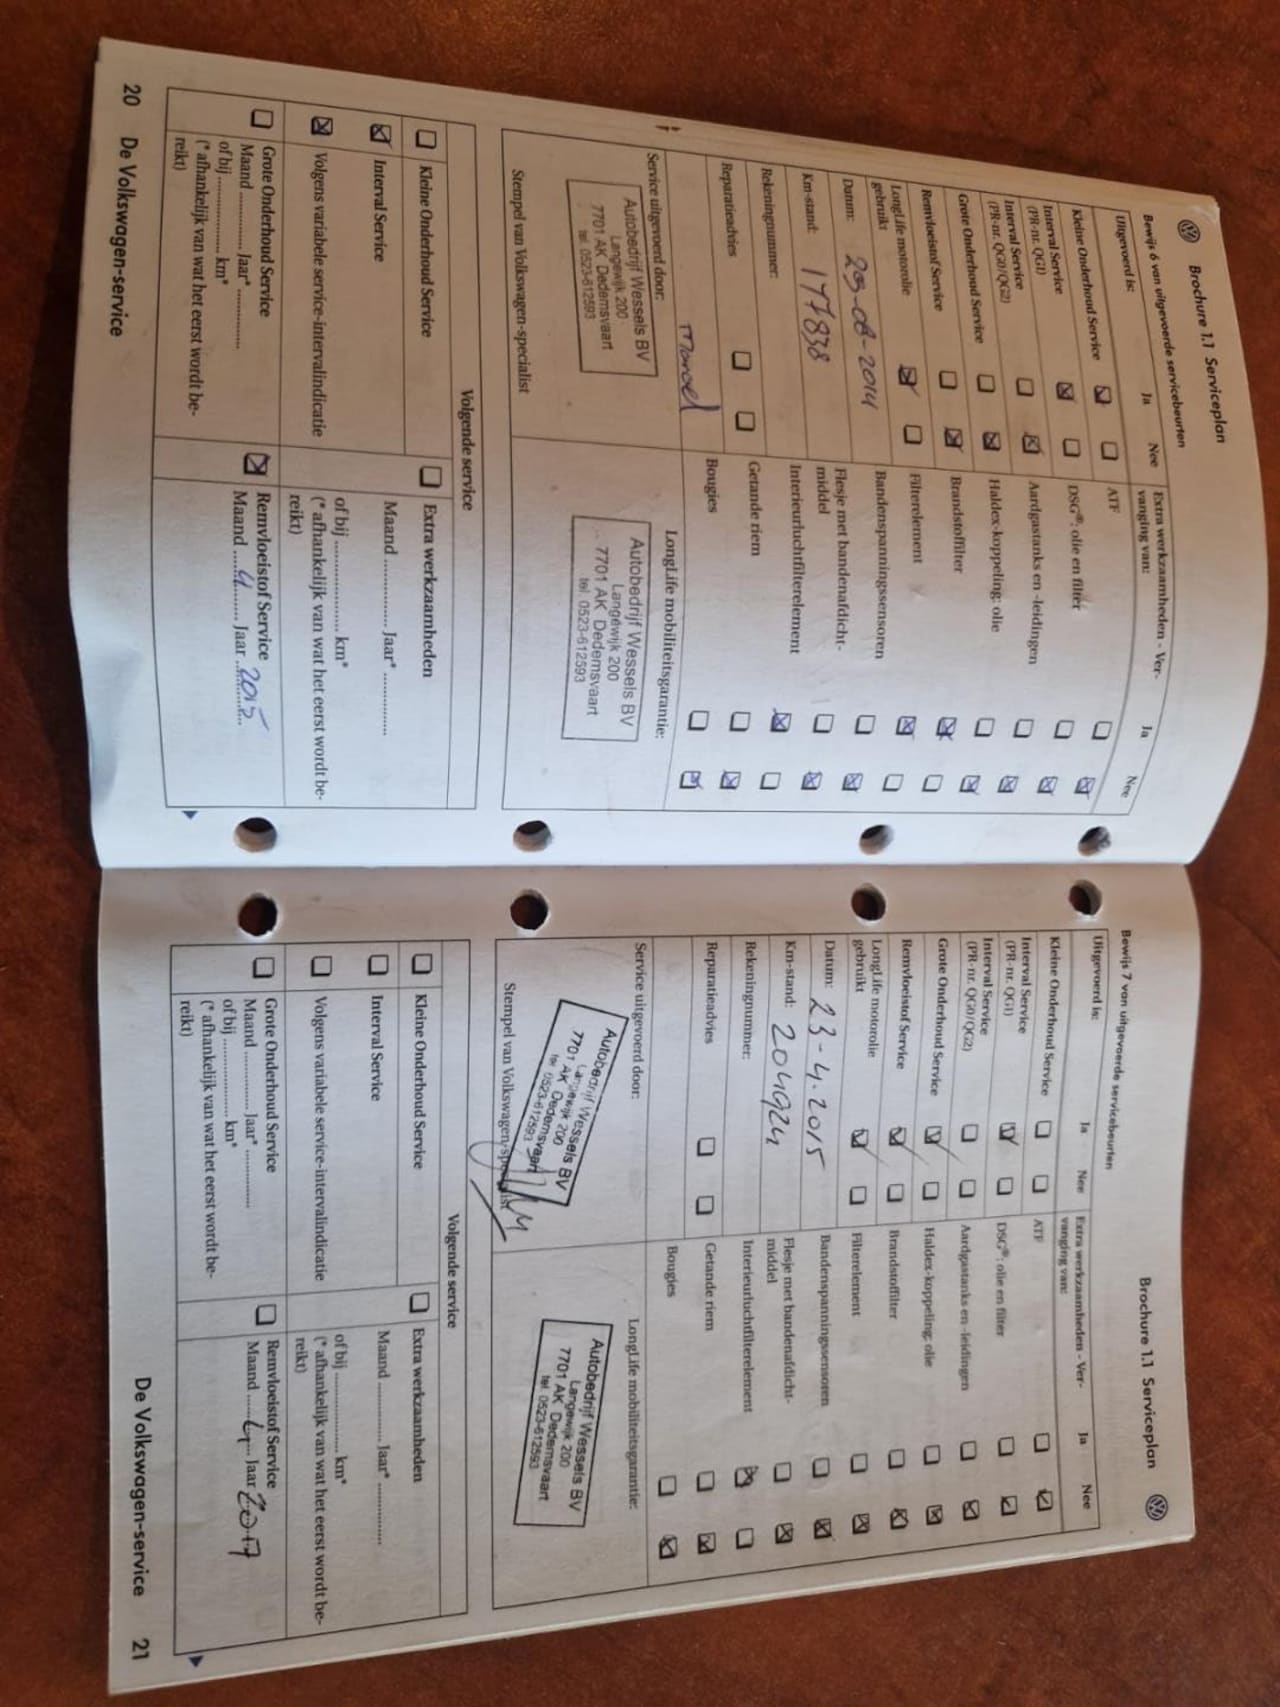 Brochure 1.1 Serviceplan
Bewijs 6 van uitgevoerde servicebeurten
Uitgevoerd is:
Ja
Nee
Kleine Onderhoud Service
Interval Service
(PR-nr. QG1)
Interval Service
(PR-nr. QG0/QG2)
Grote Onderhoud Service
Remvloeistof Service
LongLife motorolie
gebruikt
Datum: 29-08-2014
Km-stand: 177838
Rekeningnummer:
Reparatieadvies
Extra werkzaamheden - Ver-
vanging van:
Ja
Nee
ATF
DSG®: olie en filter
Aardgastanks en -leidingen
Haldex-koppeling: olie
Brandstoffilter
Filterelement
Bandenspanningssensoren
Flesje met bandenafdicht-
middel
Interieurluchtfilterelement
Getande riem
Bougies
Service uitgevoerd door:
Marcel
Autobedrijf Wessels BV
Langewijk 200
7701 AK Dedemsvaart
tel. 0523-612593
Stempel van Volkswagen-specialist
LongLife mobiliteitsgarantie:
Autobedrijf Wessels BV
Langewijk 200
7701 AK Dedemsvaart
tel. 0523-612593
Volgende service
Kleine Onderhoud Service
Interval Service
Volgens variabele service-intervalindicatie
Grote Onderhoud Service
Maand ............ Jaar* ............
of bij .................. km*
(* afhankelijk van wat het eerst wordt be-
reikt)
Extra werkzaamheden
Maand ............ Jaar* ............
of bij .................. km*
(* afhankelijk van wat het eerst wordt be-
reikt)
Remvloeistof Service
Maand ....4.... Jaar 2015
20 De Volkswagen-service
Brochure 1.1 Serviceplan
Bewijs 7 van uitgevoerde servicebeurten
Uitgevoerd is:
Ja
Nee
Kleine Onderhoud Service
Interval Service
(PR-nr. QG1)
Interval Service
(PR-nr. QG0/QG2)
Grote Onderhoud Service
Remvloeistof Service
LongLife motorolie
gebruikt
Datum: 23-4-2015
Km-stand: 204924
Rekeningnummer:
Reparatieadvies
Extra werkzaamheden - Ver-
vanging van:
Ja
Nee
ATF
DSG®: olie en filter
Aardgastanks en -leidingen
Haldex-koppeling: olie
Brandstoffilter
Filterelement
Bandenspanningssensoren
Flesje met bandenafdicht-
middel
Interieurluchtfilterelement
Getande riem
Bougies
Service uitgevoerd door:
Autobedrijf Wessels BV
Langewijk 200
7701 AK Dedemsvaart
tel. 0523-612593
Stempel van Volkswagen-specialist
LongLife mobiliteitsgarantie:
Autobedrijf Wessels BV
Langewijk 200
7701 AK Dedemsvaart
tel. 0523-612593
Volgende service
Kleine Onderhoud Service
Interval Service
Volgens variabele service-intervalindicatie
Grote Onderhoud Service
Maand ............ Jaar* ............
of bij .................. km*
(* afhankelijk van wat het eerst wordt be-
reikt)
Extra werkzaamheden
Maand ............ Jaar* ............
of bij .................. km*
(* afhankelijk van wat het eerst wordt be-
reikt)
Remvloeistof Service
Maand ....4.... Jaar 2017
De Volkswagen-service 21